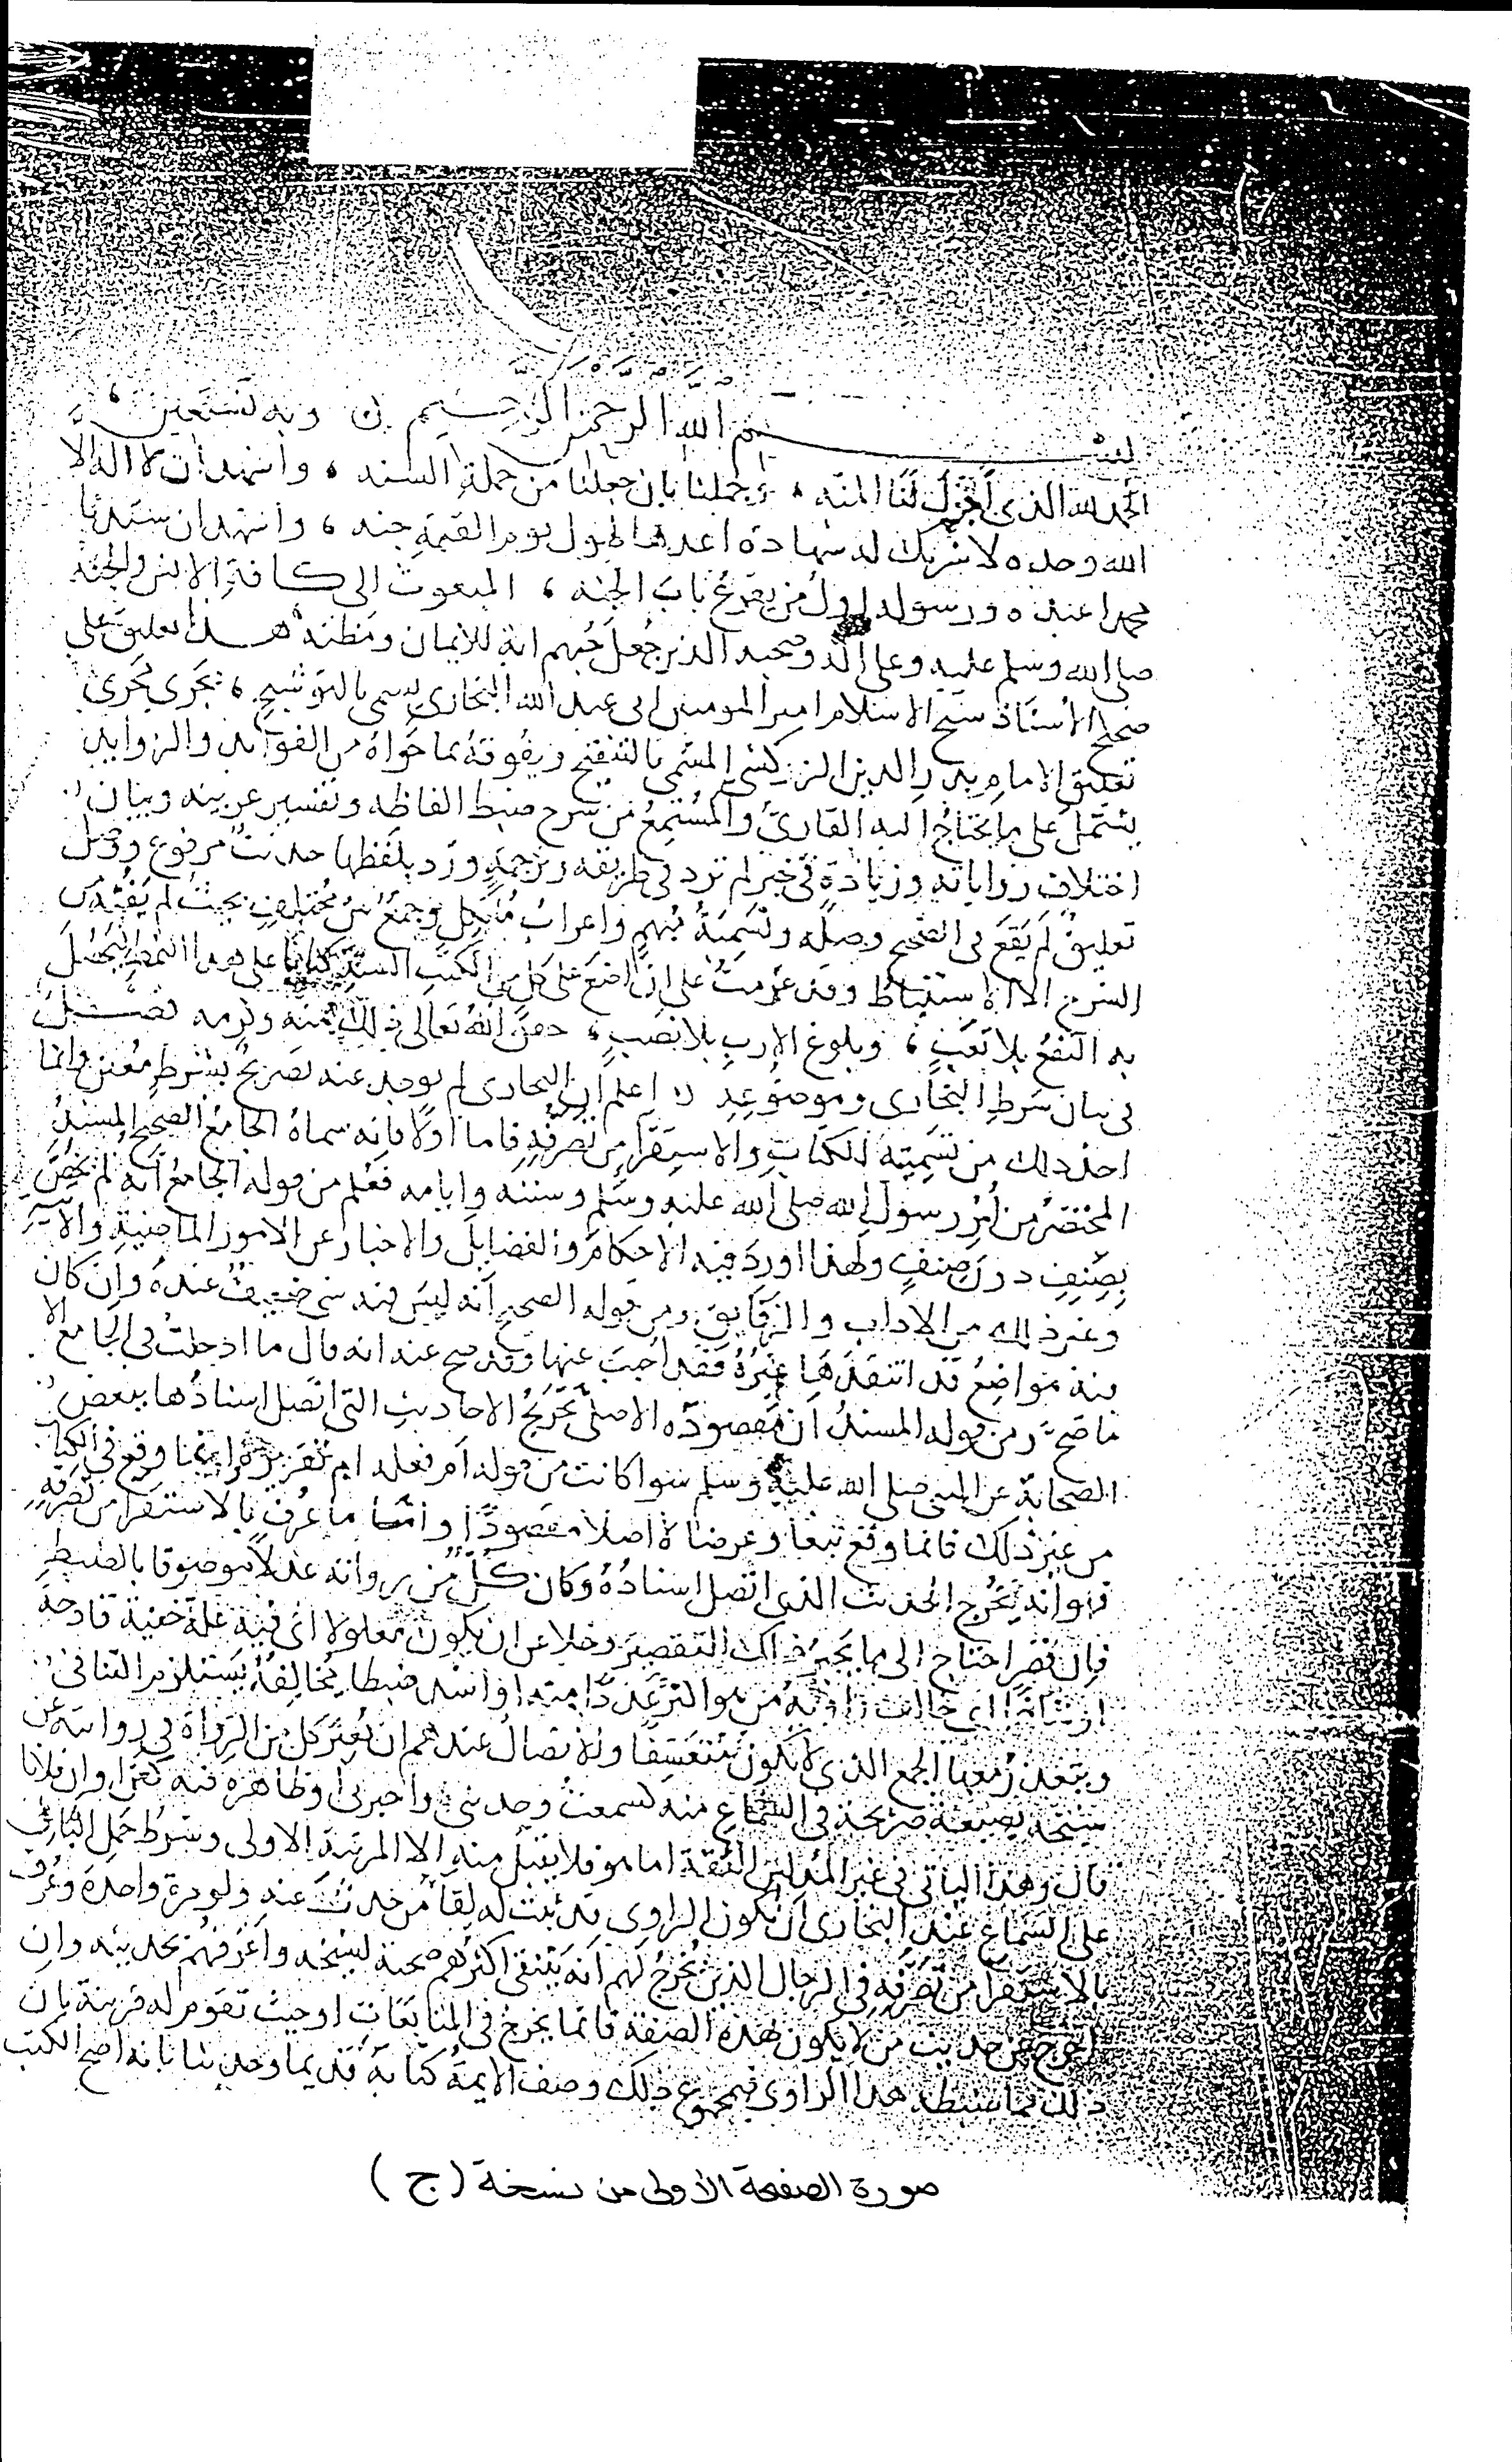 بسم الله الرحمن الرحيم وبه نستعين
الحمد لله الذي أجزل لنا المنه ، وجملنا بان جعلنا من حملة السنه ، واشهد ان لا اله الا
الله وحده لا شريك له شهادة اعدها لهول يوم القيمة جنه ، واشهد ان سيدنا
محمدا عبده ورسوله اول من يقرع باب الجنه ، المبعوث الى كافة الانس والجنه
صلى الله وسلم عليه وعلى اله وصحبه الذين جعل حبهم اية للايمان ومظنه هذا تعليق على
صحيح الأستاذ شيخ الاسلام امير المومنين ابى عبد الله البخاري يسمى بالتوشيح ، يجرى مجرى
تعليق الامام بدر الدين الزركشي المسمى بالتنقيح ويفوقه بما حواه من الفوائد والزوايد
يشتمل على ما يحتاج اليه القارئ والمستمع من شرح ضبط الفاظه وتفسير غريبه وبيان
اختلاف رواياته وزيادة في خبر لم ترد في طريقه وترجمة ورد بلفظها حديث مرفوع ووصل
تعليق لم يقع في الصحيح وصله وتسمية مبهم واعراب مشكل وجمع بين مختلف بحيث لم يفته من
الشرح الا الاستنباط وقد عزمت على ان اضع على كل من الكتب الستة كتابا على هذا النمط ليحصل
به النفع بلا تعب ، وبلوغ الارب بلا نصب ، حقق الله تعالى ذلك بمنه وكرمه فصـــل
في بيان شرط البخارى وموضوعه اعلم ان البخارى لم يوجد عنه تصريح بشرط معين وانما
اخذ ذلك من تسميته الكتاب والاستقرا من تصرفه فاما اولا فانه سماه الجامع الصحيح المسند
المختصر من امر رسول الله صلى الله عليه وسلم وسننه وايامه فعلم من قوله الجامع انه لم يخص
بصنف دون صنف ولهذا اورد فيه الاحكام والفضايل والاخبار عن الامور الماضية والاتية
وغير ذلك من الاداب والرقايق ومن قوله الصحيح انه ليس فيه شى ضعيف عنده وان كان
فيه مواضع قد انتقدها غيره فقد اجيب عنها وقد صح عنه انه قال ما ادخلت في الجامع الا
ما صح ومن قوله المسند ان مقصوده الاصلى تخريج الاحاديث التي اتصل اسنادها ببعض
الصحابة عن النبى صلى الله عليه وسلم سوا كانت من قوله ام فعله ام تقريره وانما وقع في الكتاب
من غير ذلك فانما وقع تبعا وعرضا لا اصلا مقصودا واما ما عرف بالاستقرا من تصرفه
فهو انه يخرج الحديث الذي اتصل اسناده وكان كل من رواته عدلا موصوفا بالضبط
فان قصر احتاج الى ما يجبر ذلك التقصير وخلا عن ان يكون معلولا اى فيه علة خفية قادحة
او شاذا اى خالف راويه من هو اكثر عددا منه او اشد ضبطا مخالفة يستلزم التنافى
ويتعذر معها الجمع الذي لا يكون متعسفا والاتصال عندهم ان يعبر كل من الرواة في روايته عن
شيخه بصيغة صريحة في السماع منه كسمعت وحدثنى واخبرنى او ظاهرة فيه كعن وان فلانا
قال وهذا الثاني في غير المدلس الثقة اما هو فلا يقبل منه الا المرتبة الاولى وشرط حمل الثاني
على السماع عند البخارى ان يكون الراوى قد ثبت له لقا من حدث عنه ولو مرة واحدة وعرف
بالاستقرا من تصرفه في الرجال الذين يخرج لهم انه ينتقى اكثرهم صحبة لشيخه واعرفهم بحديثه وان
اخرج من حديث من لا يكون بهذه الصفة فانما يخرج في المتابعات او حيث تقوم له قرينة بان
ذلك مما ضبطه هذا الراوى فبمجموع ذلك وصف الايمة كتابه قديما وحديثا بانه اصح الكتب
صورة الصفحة الأولى من نسخة (ج)